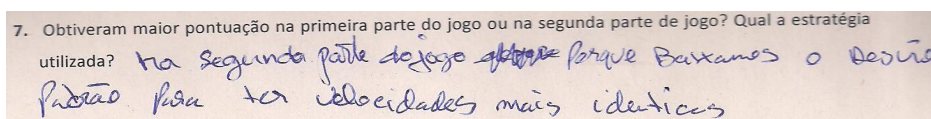 7. Obtiveram maior pontuação na primeira parte do jogo ou na segunda parte de jogo? Qual a estratégia
utilizada? na segunda parte do jogo porque Baixamos o Desvio
Padrão para ter velocidades mais identicas